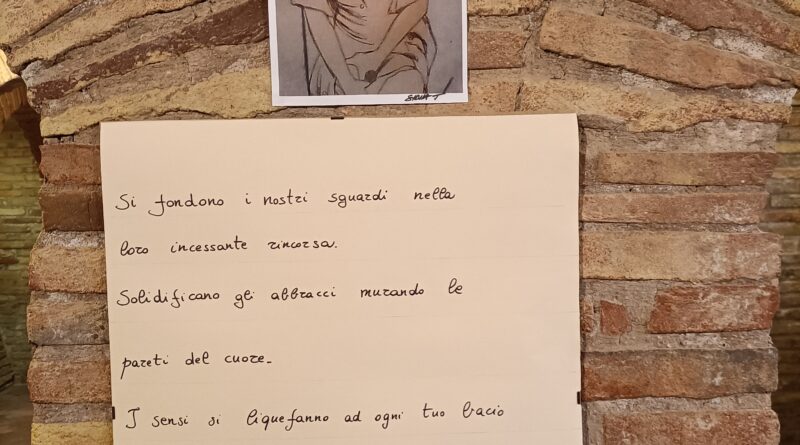 Si fondono i nostri sguardi nella
loro incessante rincorsa.
Solidificano gli abbracci murando le
pareti del cuore.
I sensi si liquefanno ad ogni tuo bacio